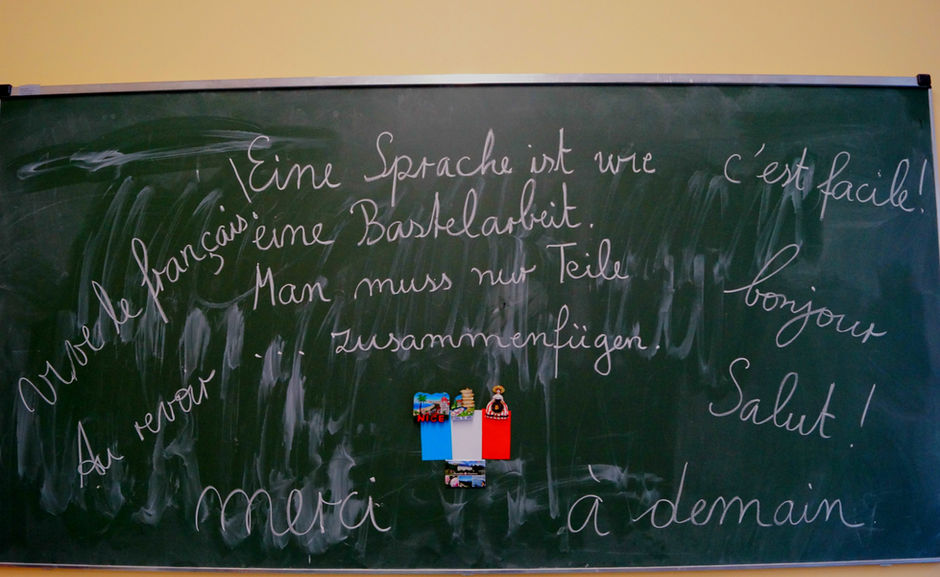 Eine Sprache ist wie
eine Bastelarbeit.
Man muss nur Teile
... zusammenfügen.
c'est facile!
Vive le français!
bonjour
Au revoir
Salut!
NICE
merci
à demain